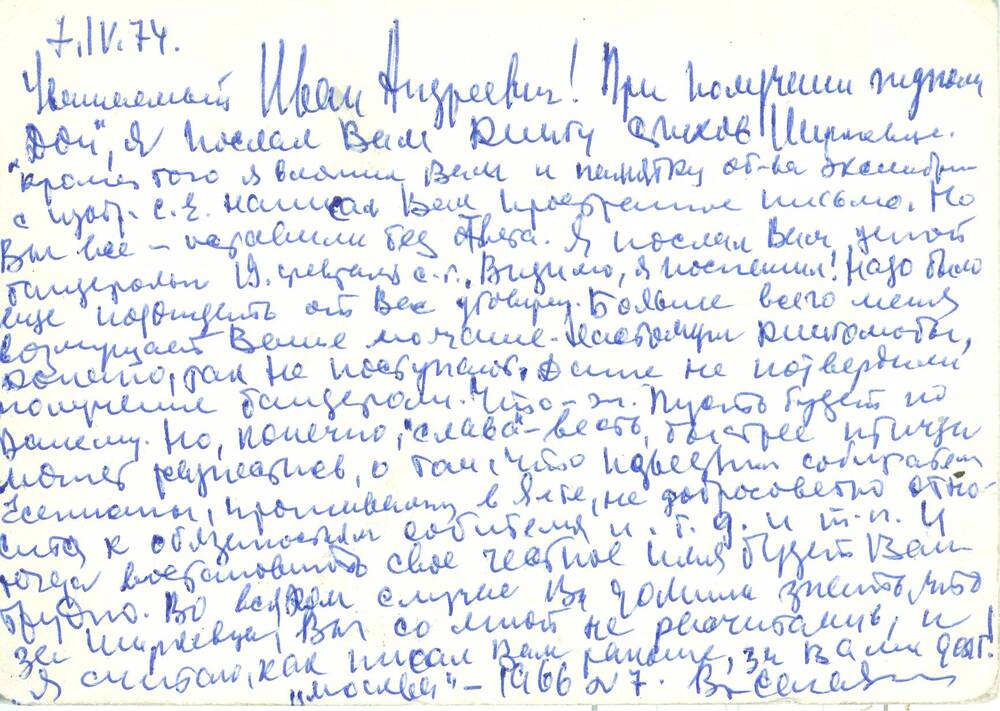 7.IV.74.
Уважаемый Иван Андреевич! При получении журнала
"Дон", я послал Вам книгу стихов Ширяевца.
Кроме того я вложил Вам и памятку об-ва экслибри
с изобр. С.Е. написал Вам пространное письмо. Но
Вы все – оставили без ответа. Я послал Вам ценой
бандероли 19. февраля с.г., Видимо, я поспешил! Надо было
еще подождать от Вас. Больше всего меня
возмущает Ваше молчание. Настоящие книголюбы,
конечно, так не поступают. Даже не потвердили
получение бандероли. Что-ж. Пусть будет по
Вашему. Но, конечно, "слава" – весть, быстрее птицы
может разнестись, о том, что известный собиратель
Есенианы, проживающий в Ялте, не добросовестно отно-
сится к обязаностям собителя и. т. д. и т.п. И
тогда востановить свое честное имя будет Вам
трудно. Во всяком случае Вы должны знать, что
за Ширяевца, Вы со мной не расчитались, и
Я считаю, как писал Вам раньше, за Вами долг!
"Москва" – 1966 № 7.